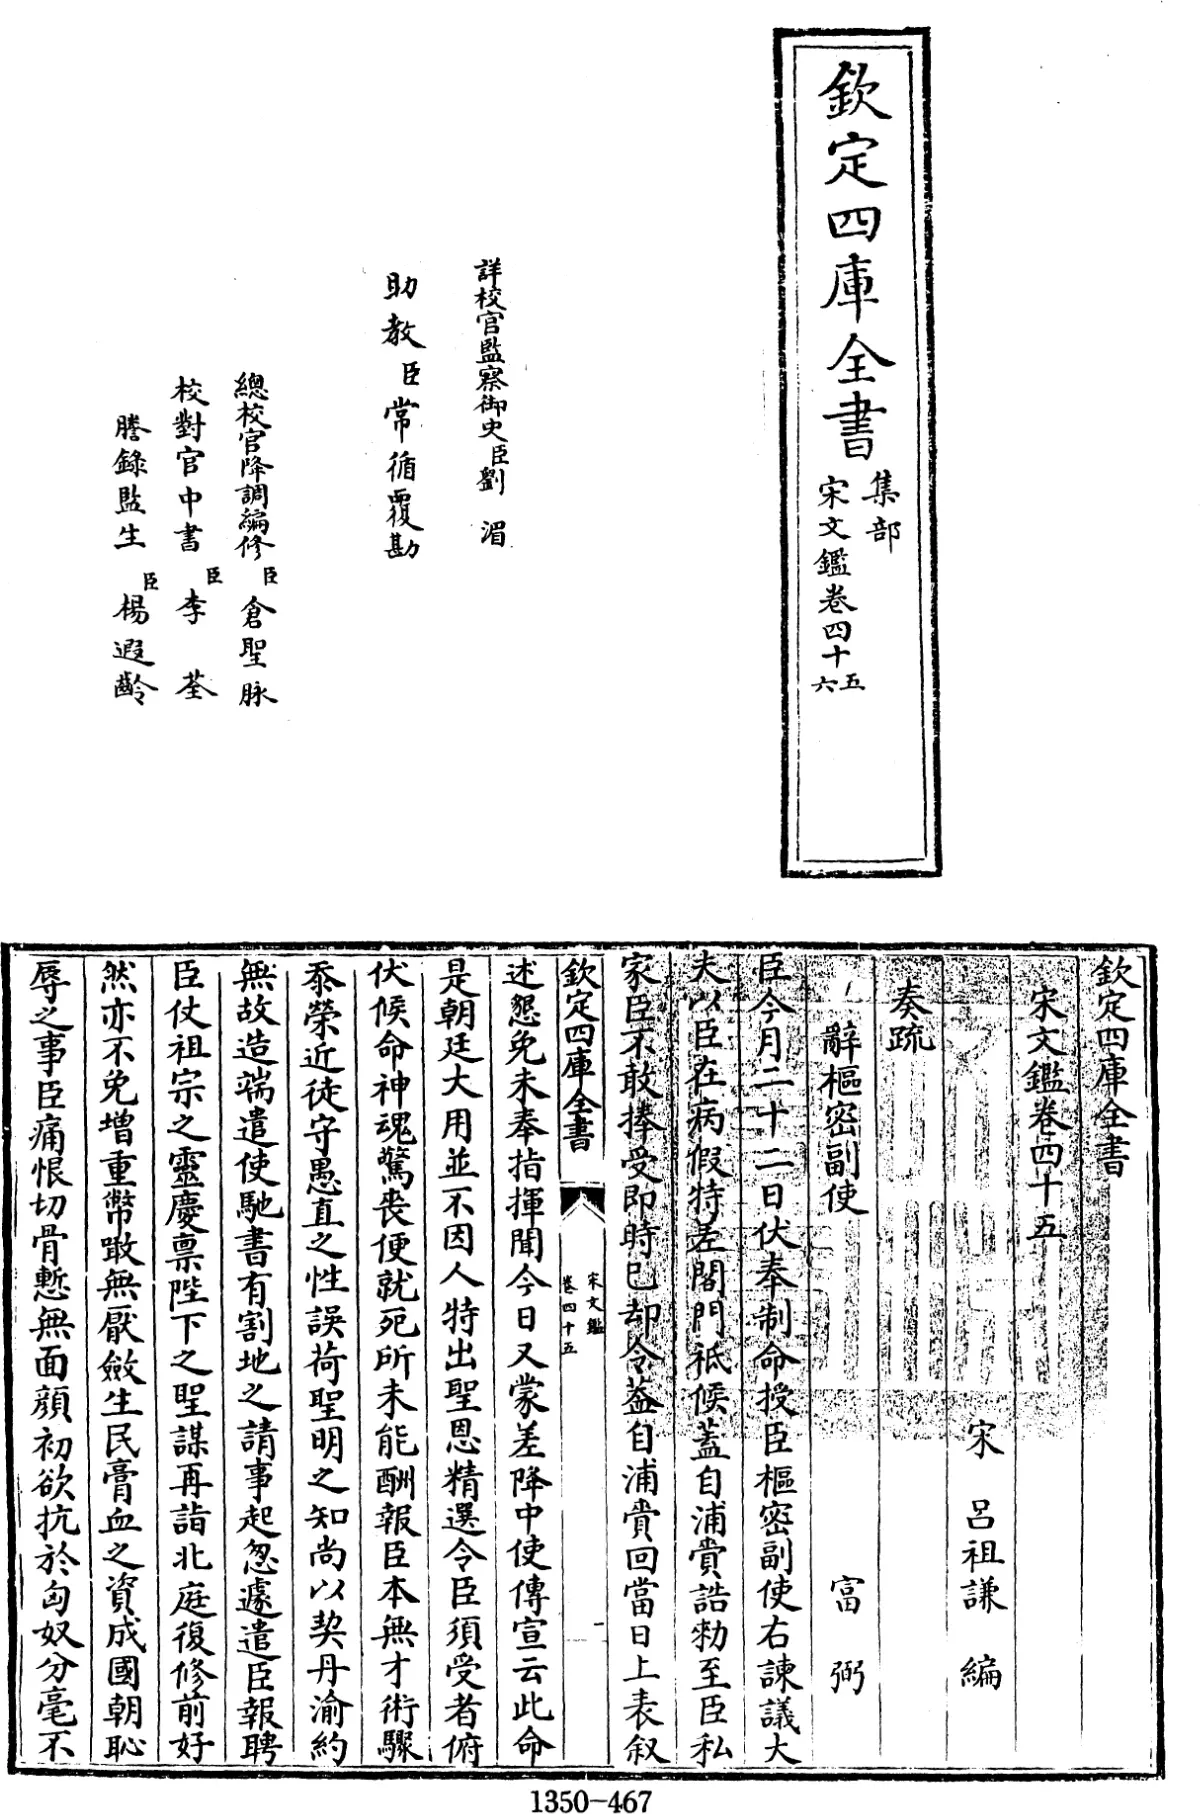 欽定四庫全書
集部
宋文鑑卷四十五
六
詳校官監察御史臣劉湄
助教臣常循覆勘
總校官降調編修臣倉聖脉
校對官中書臣李荃
謄錄監生臣楊遐齡
欽定四庫全書
宋文鑑卷四十五
宋 呂祖謙 編
奏疏
辭樞密副使 富弼
臣今月二十二日伏奉制命授臣樞密副使右諫議大
夫以臣在病假特差閤門祗候蓋自浦賫誥勑至臣私
家臣不敢捧受即時已却令蓋自浦賫回當日上表叙
欽定四庫全書
宋文鑑
卷四十五
一
述懇免未奉指揮聞今日又蒙差降中使傳宣云此命
是朝廷大用並不因人特出聖恩精選令臣須受者俯
伏候命神魂驚丧便就死所未能酬報臣本無才術驟
忝榮近徒守愚直之性誤荷聖明之知尚以契丹渝約
無故造端遣使馳書有割地之請事起怱遽遣臣報聘
臣仗祖宗之靈慶禀陛下之聖謀再詣北庭復修前好
然亦不免增重幣噉無厭斂生民膏血之資成國朝恥
辱之事臣痛恨切骨慙無面顔初欲抗於匈奴分毫不
1350-467